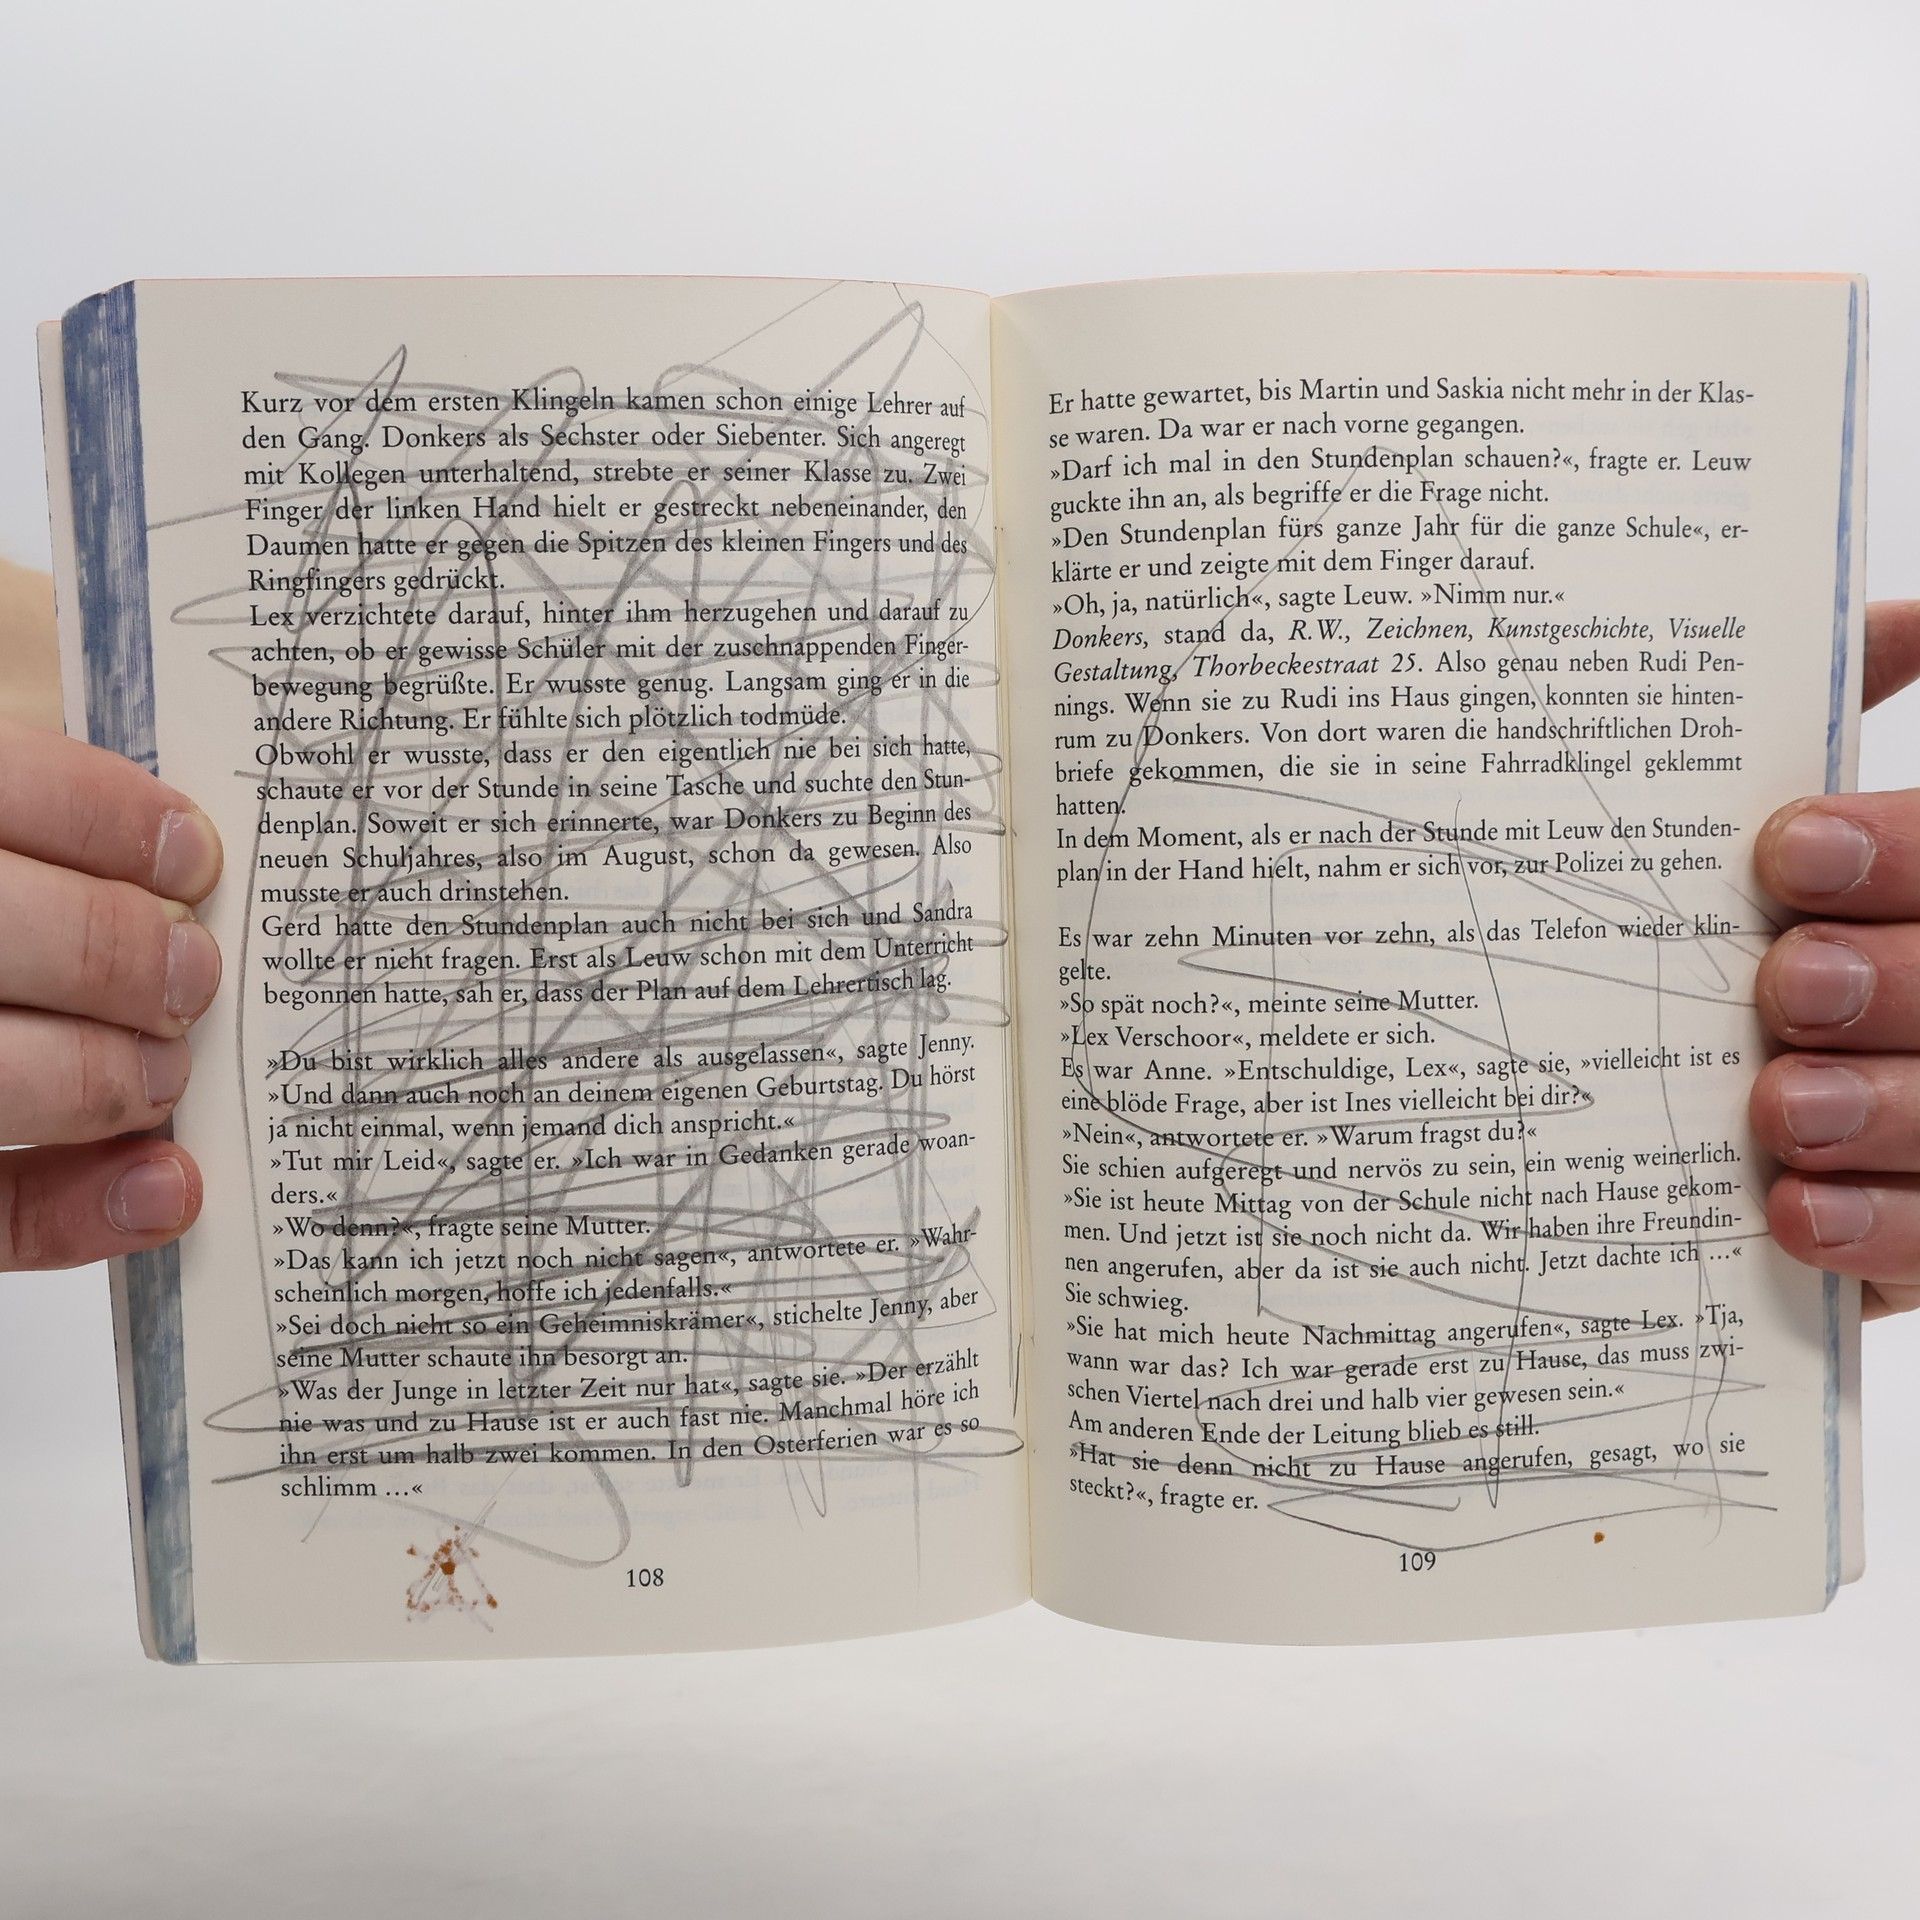 Kurz vor dem ersten Klingeln kamen schon einige Lehrer auf
den Gang. Donkers als Sechster oder Siebenter. Sich angeregt
mit Kollegen unterhaltend, strebte er seiner Klasse zu. Zwei
Finger der linken Hand hielt er gestreckt nebeneinander, den
Daumen hatte er gegen die Spitzen des kleinen Fingers und des
Ringfingers gedrückt.
Lex verzichtete darauf, hinter ihm herzugehen und darauf zu
achten, ob er gewisse Schüler mit der zuschnappenden Finger-
bewegung begrüßte. Er wusste genug. Langsam ging er in die
andere Richtung. Er fühlte sich plötzlich todmüde.
Obwohl er wusste, dass er den eigentlich nie bei sich hatte,
schaute er vor der Stunde in seine Tasche und suchte den Stun-
denplan. Soweit er sich erinnerte, war Donkers zu Beginn des
neuen Schuljahres, also im August, schon da gewesen. Also
musste er auch drinstehen.
Gerd hatte den Stundenplan auch nicht bei sich und Sandra
wollte er nicht fragen. Erst als Leuw schon mit dem Unterricht
begonnen hatte, sah er, dass der Plan auf dem Lehrertisch lag.
»Du bist wirklich alles andere als ausgelassen«, sagte Jenny.
»Und dann auch noch an deinem eigenen Geburtstag. Du hörst
ja nicht einmal, wenn jemand dich anspricht.«
»Tut mir Leid«, sagte er. »Ich war in Gedanken gerade woan-
ders.«
»Wo denn?«, fragte seine Mutter.
»Das kann ich jetzt noch nicht sagen«, antwortete er. »Wahr-
scheinlich morgen, hoffe ich jedenfalls.«
»Sei doch nicht so ein Geheimniskrämer«, stichelte Jenny, aber
seine Mutter schaute ihn besorgt an.
»Was der Junge in letzter Zeit nur hat«, sagte sie. »Der erzählt
nie was und zu Hause ist er auch fast nie. Manchmal höre ich
ihn erst um halb zwei kommen. In den Osterferien war es so
schlimm ...«
108
Er hatte gewartet, bis Martin und Saskia nicht mehr in der Klas-
se waren. Da war er nach vorne gegangen.
»Darf ich mal in den Stundenplan schauen?«, fragte er. Leuw
guckte ihn an, als begriffe er die Frage nicht.
»Den Stundenplan fürs ganze Jahr für die ganze Schule«, er-
klärte er und zeigte mit dem Finger darauf.
»Oh, ja, natürlich«, sagte Leuw. »Nimm nur.«
Donkers, stand da, R.W., Zeichnen, Kunstgeschichte, Visuelle
Gestaltung, Thorbeckestraat 25. Also genau neben Rudi Pen-
nings. Wenn sie zu Rudi ins Haus gingen, konnten sie hinten-
rum zu Donkers. Von dort waren die handschriftlichen Droh-
briefe gekommen, die sie in seine Fahrradklingel geklemmt
hatten.
In dem Moment, als er nach der Stunde mit Leuw den Stunden-
plan in der Hand hielt, nahm er sich vor, zur Polizei zu gehen.
Es war zehn Minuten vor zehn, als das Telefon wieder klin-
gelte.
»So spät noch?«, meinte seine Mutter.
»Lex Verschoor«, meldete er sich.
Es war Anne. »Entschuldige, Lex«, sagte sie, »vielleicht ist es
eine blöde Frage, aber ist Ines vielleicht bei dir?«
»Nein«, antwortete er. »Warum fragst du?«
Sie schien aufgeregt und nervös zu sein, ein wenig weinerlich.
»Sie ist heute Mittag von der Schule nicht nach Hause gekom-
men. Und jetzt ist sie noch nicht da. Wir haben ihre Freundin-
nen angerufen, aber da ist sie auch nicht. Jetzt dachte ich ...«
Sie schwieg.
»Sie hat mich heute Nachmittag angerufen«, sagte Lex. »Tja,
wann war das? Ich war gerade erst zu Hause, das muss zwi-
schen Viertel nach drei und halb vier gewesen sein.«
Am anderen Ende der Leitung blieb es still.
»Hat sie denn nicht zu Hause angerufen, gesagt, wo sie
steckt?«, fragte er.
109